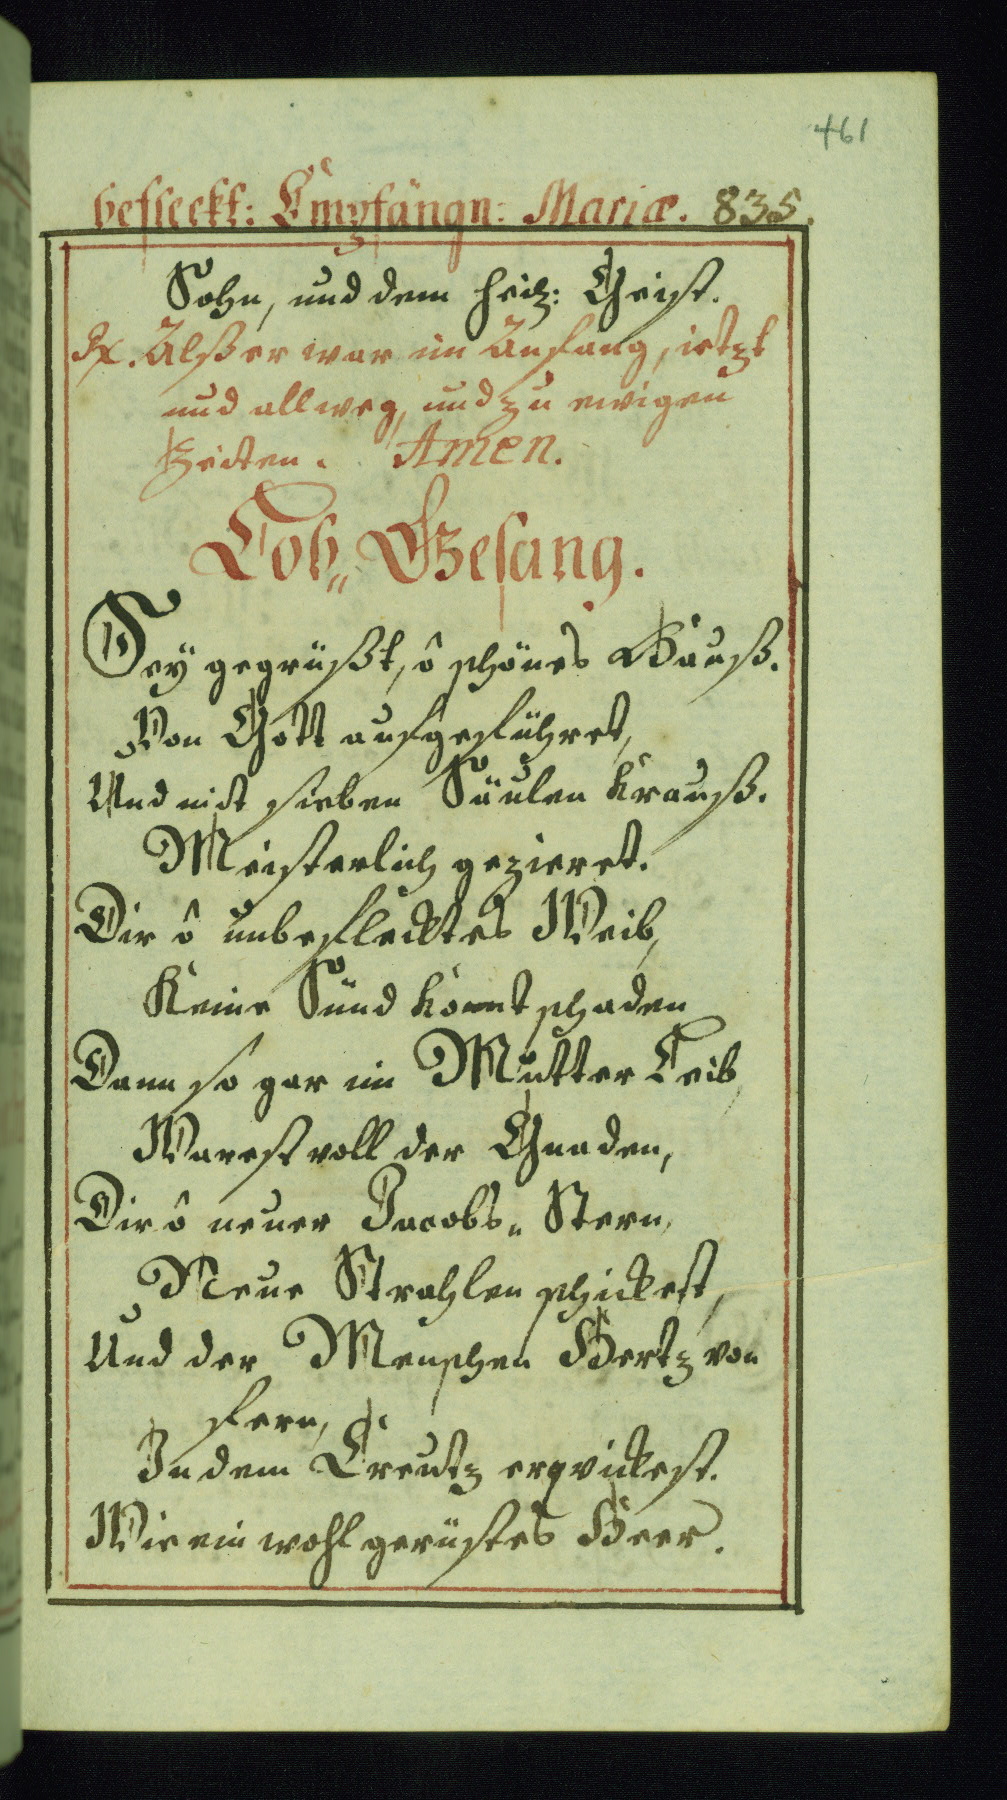 461
befleckt: Empfängn: Mariæ. 835.
Sohn, und dem heilg: Geist.
℟. Alß er war im Anfang, ietzt
und allweg, und zu ewigen
Zeiten. Amen.
Lob„ Gesang.
Sey gegrüßt, ô schönes Hauß.
Von Gott aufgeführet,
Und mit sieben Säulen krauß.
Meisterlich gezieret.
Dir ô unbeflecktes Weib,
Keine Sünd komt schaden
Dann so gar im Mutter Leib,
Warest voll der Gnaden,
Dir ô neuer Jacobs„ Stern,
Neue Strahlen schickest,
Und der Menschen Hertz von
fern,
In dem Creutz erqvickest.
Wie ein wohl gerüstes Heer.